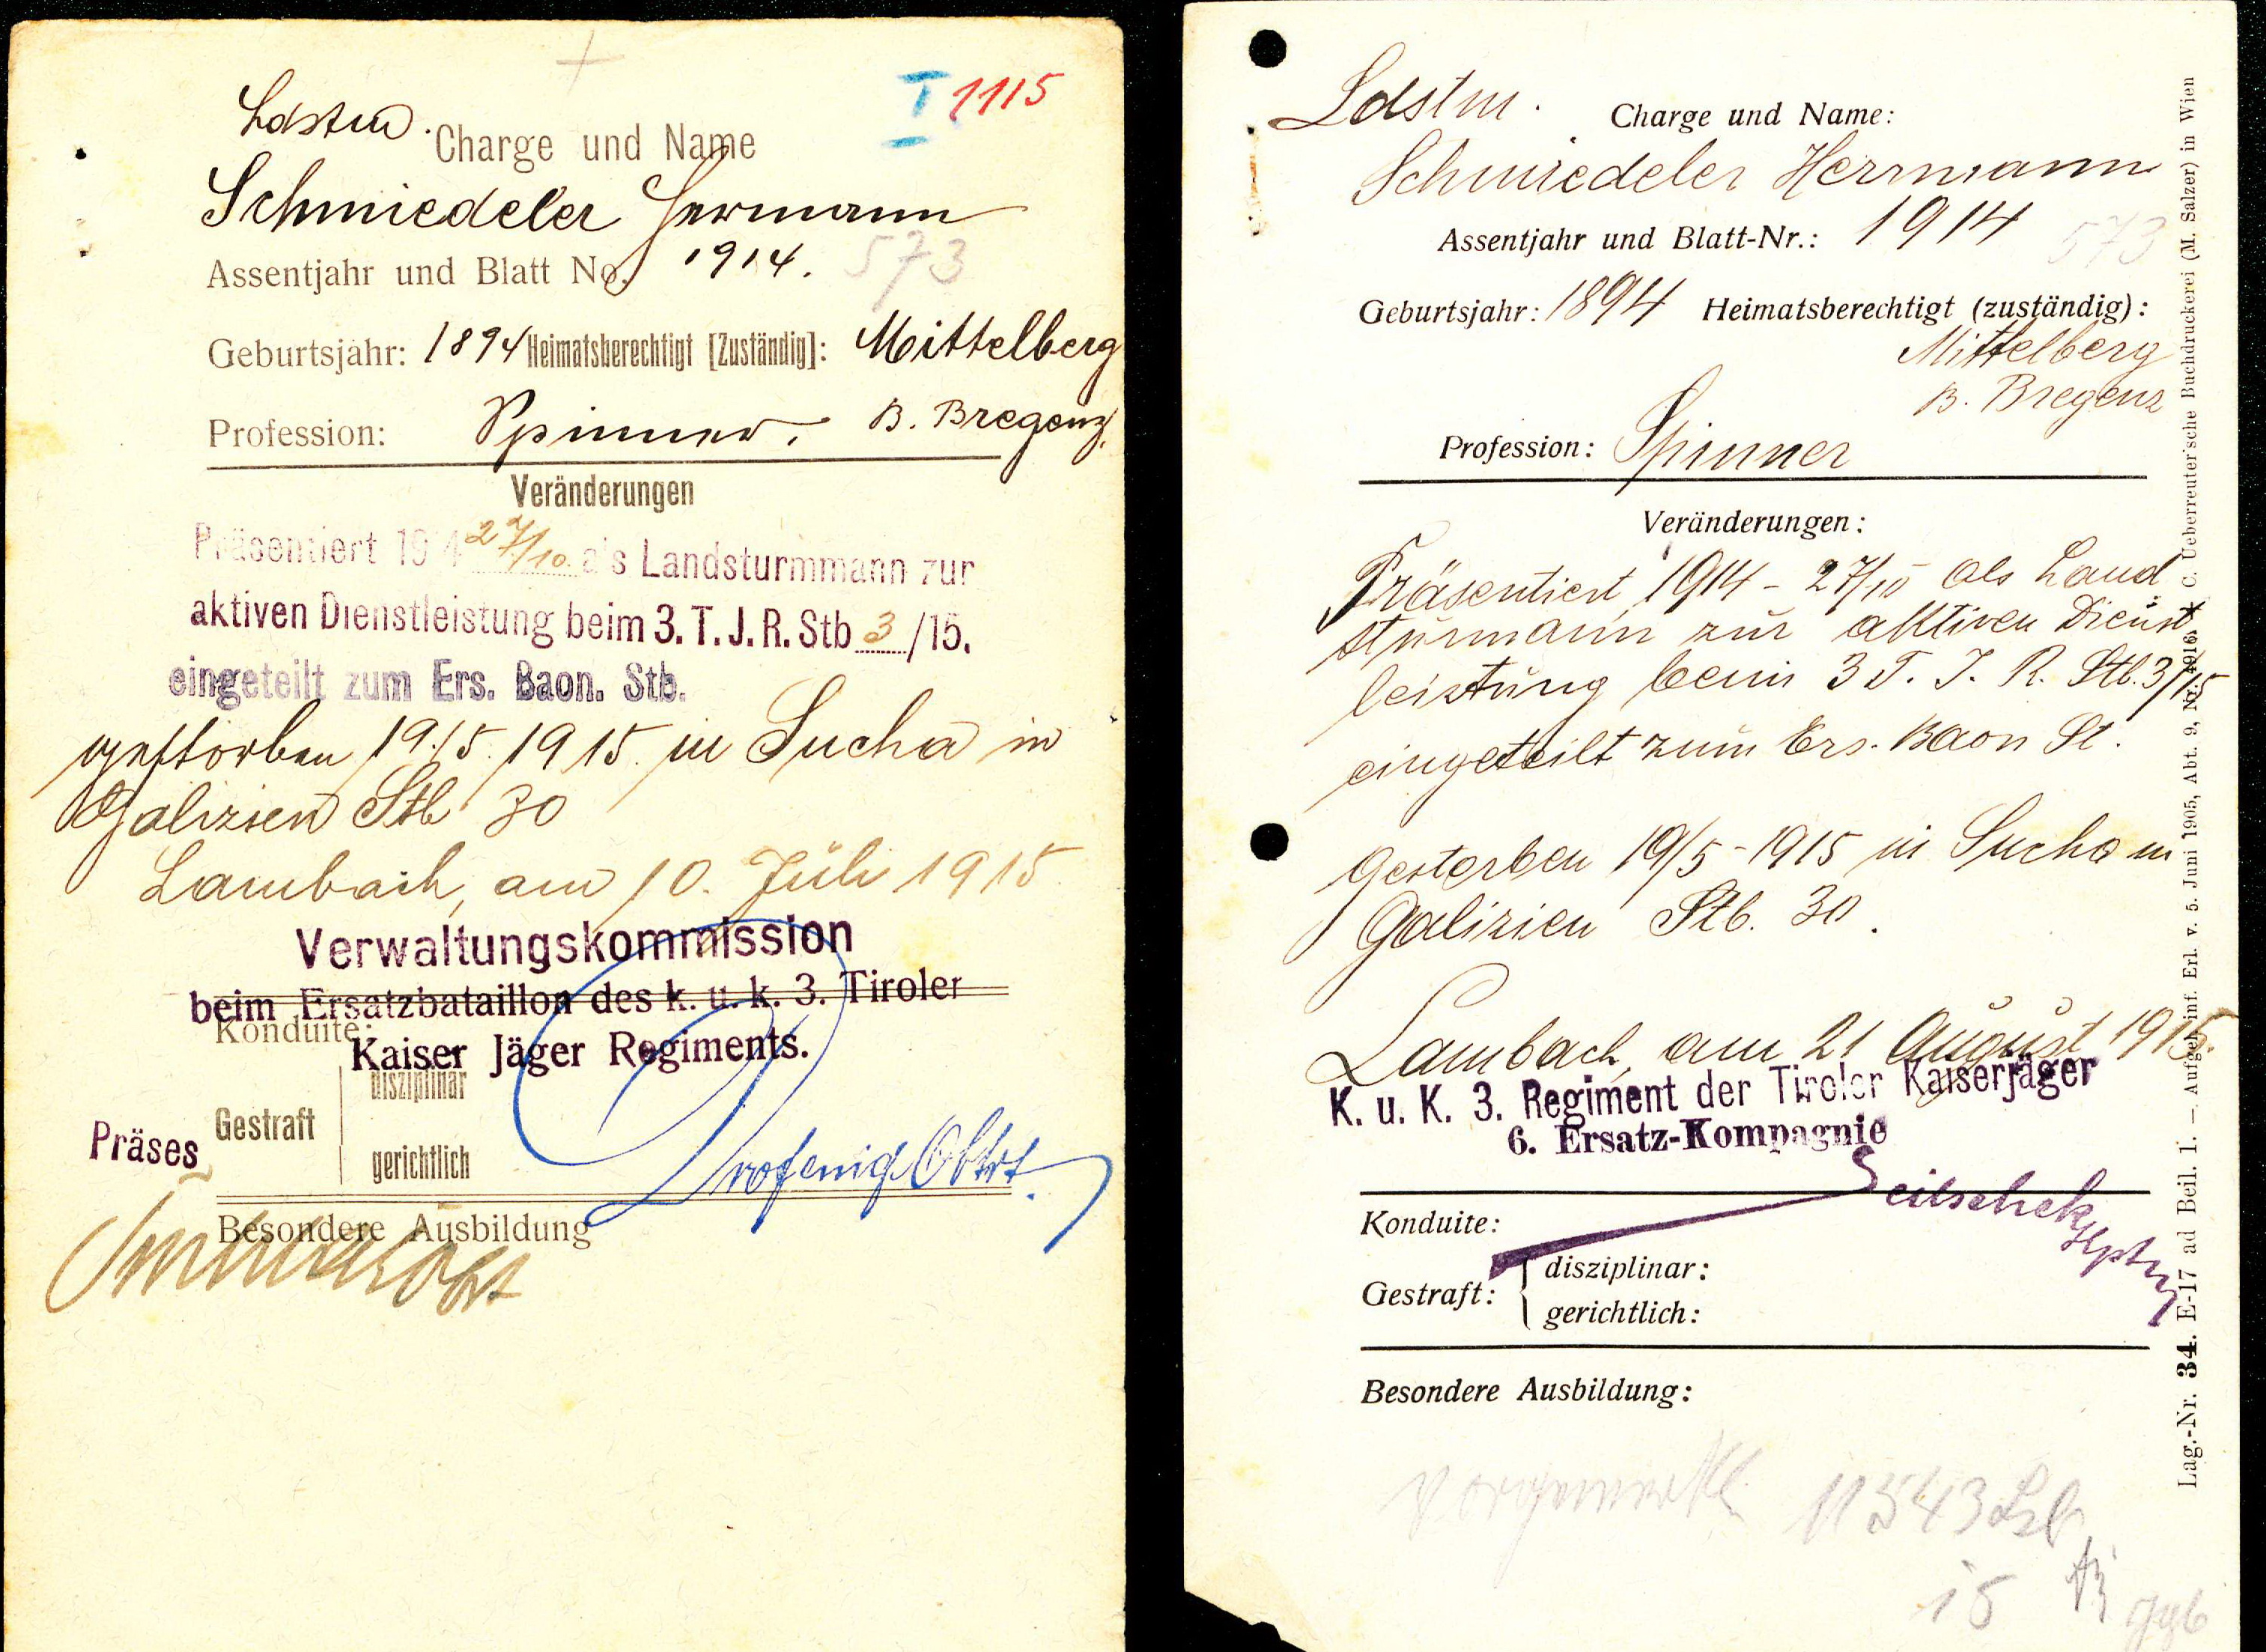 I 1115
Ldstm.
Charge und Name
Schmiedeler Hermann
Assentjahr und Blatt No. 1914. 573
Geburtsjahr: 1894 Heimatsberechtigt [Zuständig]: Mittelberg
B. Bregenz.
Profession: Spinner.
Veränderungen
Präsentiert 1914 27/10. als Landsturmmann zur
aktiven Dienstleistung beim 3. T. J. R. Stb 3/15.
eingeteilt zum Ers. Baon. Stb.
gestorben 19./5. 1915. in Sucha in
Galizien Stb 30
Lambach, am 10. Juli 1915
Verwaltungskommission
beim Ersatzbataillon des k. u. k. 3. Tiroler
Konduite:
Kaiser Jäger Regiments.
Präses
Gestraft
disziplinar
gerichtlich
Besondere Ausbildung
Ldstm.
Charge und Name:
Schmiedeler Herrmann
Assentjahr und Blatt-Nr.: 1914 573
Geburtsjahr: 1894 Heimatsberechtigt (zuständig):
Mittelberg
B. Bregenz
Profession: Spinner
Veränderungen:
Präsentiert 1914 - 27/10 als Land
sturmann zur aktiven Dienst
leistung beim 3 T. J. R. Stb. 3/15
eingeteilt zum Ers. Baon St.
Gestorben 19/5 - 1915 in Sucha in
Galizien Stb. 30.
Lambach, am 21 August 1915.
K. u. K. 3. Regiment der Tiroler Kaiserjäger
6. Ersatz-Kompagnie
Konduite:
Gestraft:
disziplinar:
gerichtlich:
Besondere Ausbildung:
Vorgemerkt 11543
15
Lag.-Nr. 34. E-17 ad Beil. 1. — Aufgeh. inf. Erl. v. 5. Juni 1905, Abt. 9, Nr. 1916. C. Ueberreuter'sche Buchdruckerei (M. Salzer) in Wien